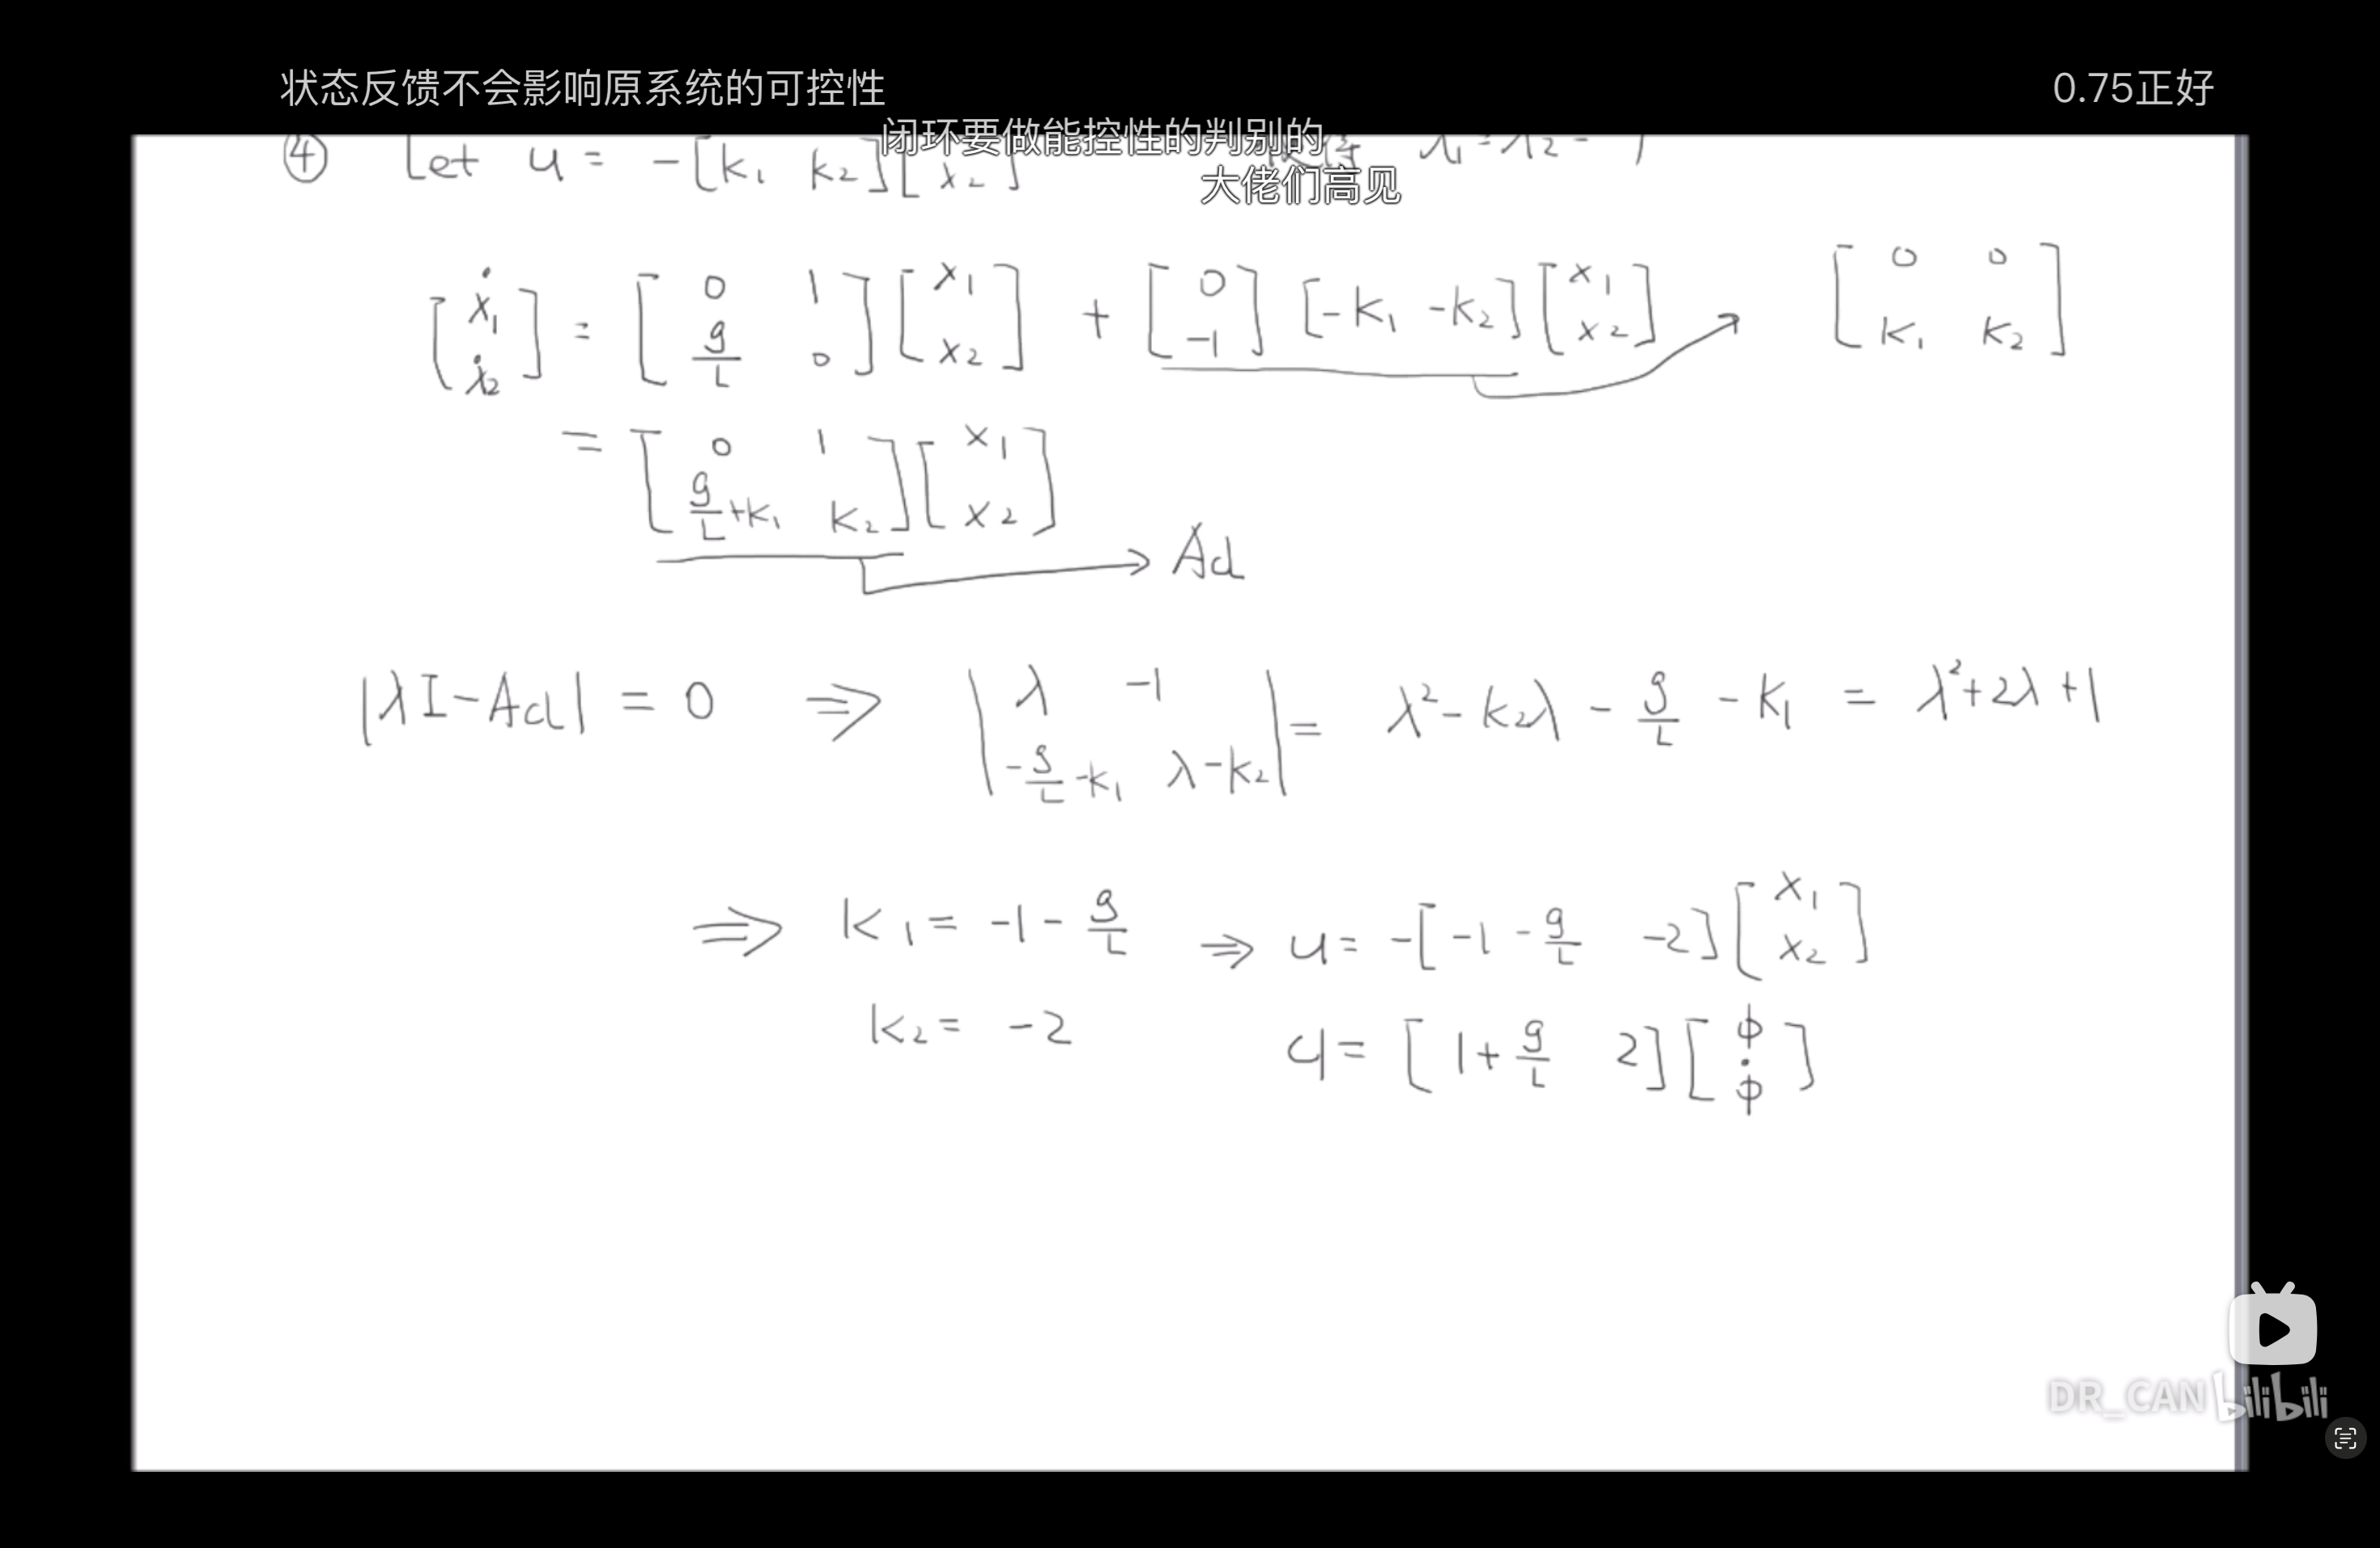 状态反馈不会影响原系统的可控性
0.75正好
闭环要做能控性的判别的
大佬们高见
④ Let u = -[k₁ k₂][ x₂] λ₁=λ₂=-1
[ẋ₁ ẋ₂] = [0 1; g/L 0][x₁; x₂] + [0; -1][-k₁ -k₂][x₁; x₂] → [0 0; k₁ k₂]
= [0 1; g/L+k₁ k₂][x₁; x₂]
→ Acl
|λI-Acl| = 0 ⇒ |λ -1; -g/L-k₁ λ-k₂| = λ²-k₂λ - g/L - k₁ = λ²+2λ+1
⇒ k₁ = -1 - g/L ⇒ u = -[-1 - g/L -2][x₁; x₂]
k₂ = -2 u = [1+g/L 2][ϕ; ϕ̇]
DR_CAN bilibili